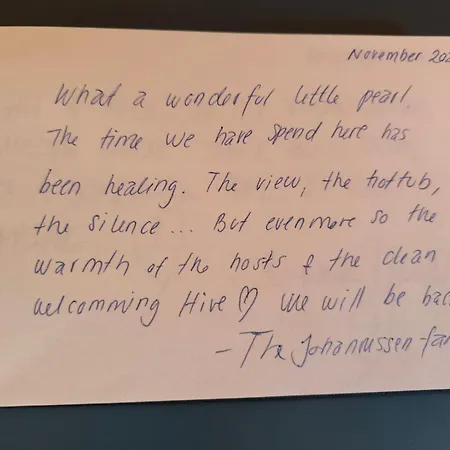 November 202
What a wonderful little pearl.
The time we have spend here has
been healing. The view, the hottub,
the silence... But evenmore so the
warmth of the hosts & the clean
welcomming Hive ♡ We will be bac
- The Johannssen-fam